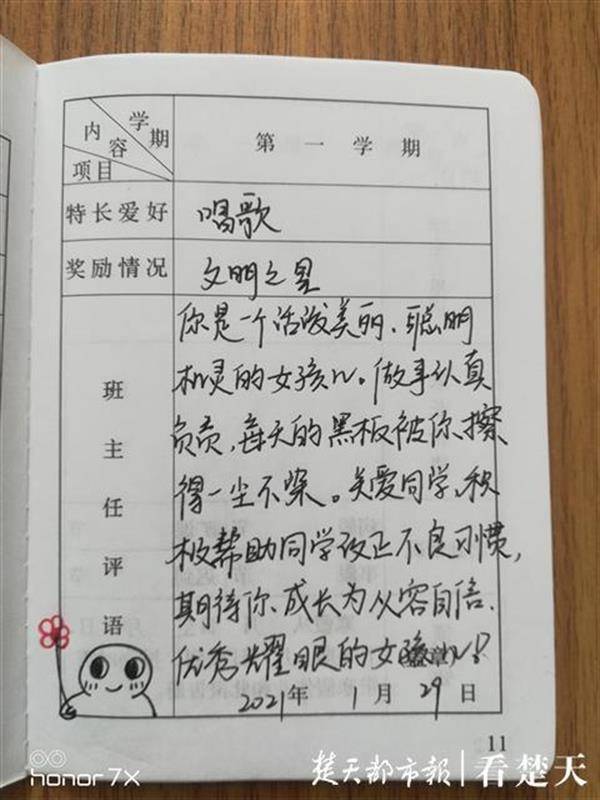 学期
内容
项目
第一学期
特长爱好
唱歌
奖励情况
文明之星
班主任评语
你是一个活泼美丽、聪明
机灵的女孩儿。做事认真
负责,每天的黑板被你擦
得一尘不染。关爱同学,积
极帮助同学改正不良习惯,
期待你成长为从容自信、
优秀耀眼的女孩儿!
2021年1月29日
11
honor 7X
楚天都市报|看楚天